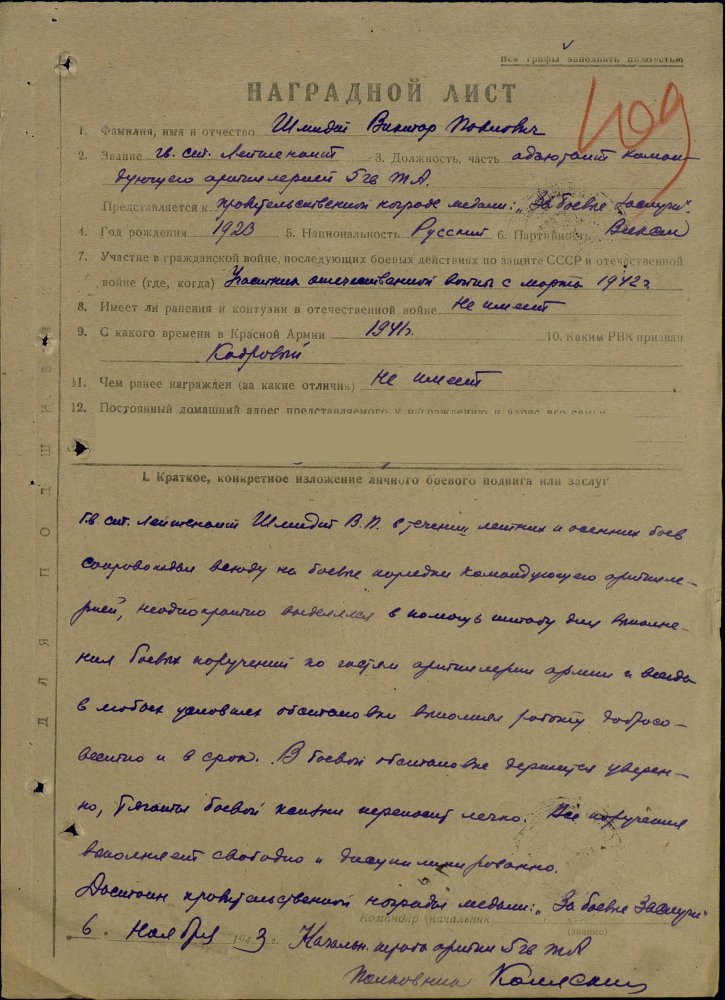 Все графы заполнить полностью
НАГРАДНОЙ ЛИСТ
409
1. Фамилия, имя и отчество Шмидт Виктор Павлович
2. Звание гв. ст. Лейтенант 3. Должность, часть адъютант коман-
дующего артиллерией 5 гв ТА.
Представляется к правительственной награде медали: „За боевые заслуги".
4. Год рождения 1923 5. Национальность Русский 6. Партийность ВЛКСМ
7. Участие в гражданской войне, последующих боевых действиях по защите СССР и отечественной
войне (где, когда) Участник отечественной войны с марта 1942 г.
8. Имеет ли ранения и контузии в отечественной войне Не имеет
9. С какого времени в Красной Армии 1941 г. 10. Каким РВК призван
Кадровый
11. Чем ранее награжден (за какие отличия) Не имеет
12. Постоянный домашний адрес представляемого к награждению и адрес его семьи
I. Краткое, конкретное изложение личного боевого подвига или заслуг
Гв. ст. Лейтенант Шмидт В.П. в течении летних и осенних боев
сопровождал всюду на боевые порядки Командующего артилле-
рией, неоднократно выделялся в помощь штабу для выполне-
ния боевых поручений по частям артиллерии армии и всегда
в любых условиях обстановки выполнял работу добросо-
вестно и в срок. В боевой обстановке держится уверен-
но, тяготы боевой жизни переносит легко. Все поручения
выполняет свободно и дисциплинированно.
Достоин правительственной награды медали: „За боевые Заслуги"
Командир (начальник)
(звание)
6 Ноября 1943 г. Начальн. штаба артил 5 гв ТА
Полковник
ДЛЯ ПОДШИВКИ